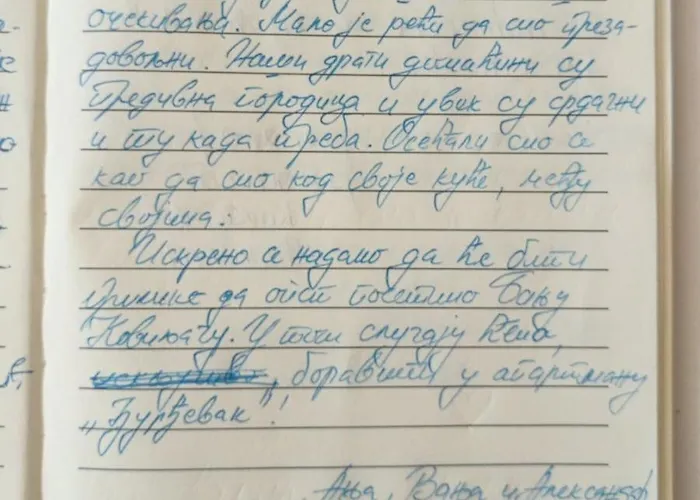 очекивања. Мало је рећи да смо преза-
довољни. Наши драги домаћини су
предивна породица и увек су срдачни
и ту када треба. Осећали смо се
као да смо код своје куће, међу
својима.
Искрено се надамо да ће бити
прилике да опет посетимо Бању
Ковиљачу. У том случају ћемо,
боравити у апартману
„Ђурђевак"!
Ања, Вања и Александар